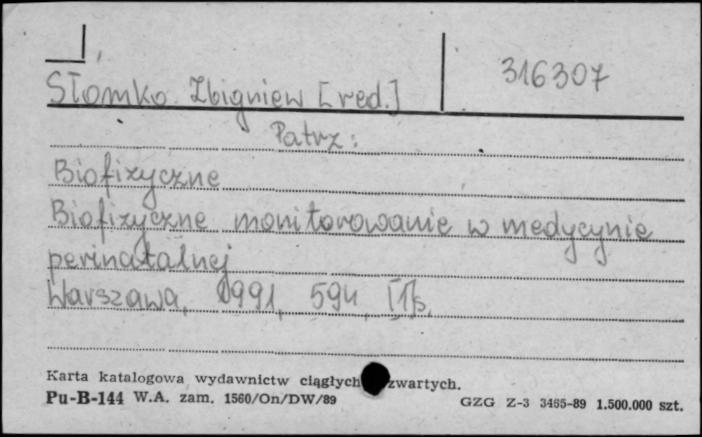 316307
Słomko Zbigniew [red.]
Patrz:
Biofizyczne
Biofizyczne monitorowanie w medycynie
perinatalnej
Warszawa, 1991, 594, [1]s.
Karta katalogowa wydawnictw ciągłych zwartych.
Pu-B-144 W.A. zam. 1560/On/DW/89 GZG Z-3 3465-89 1.500.000 szt.